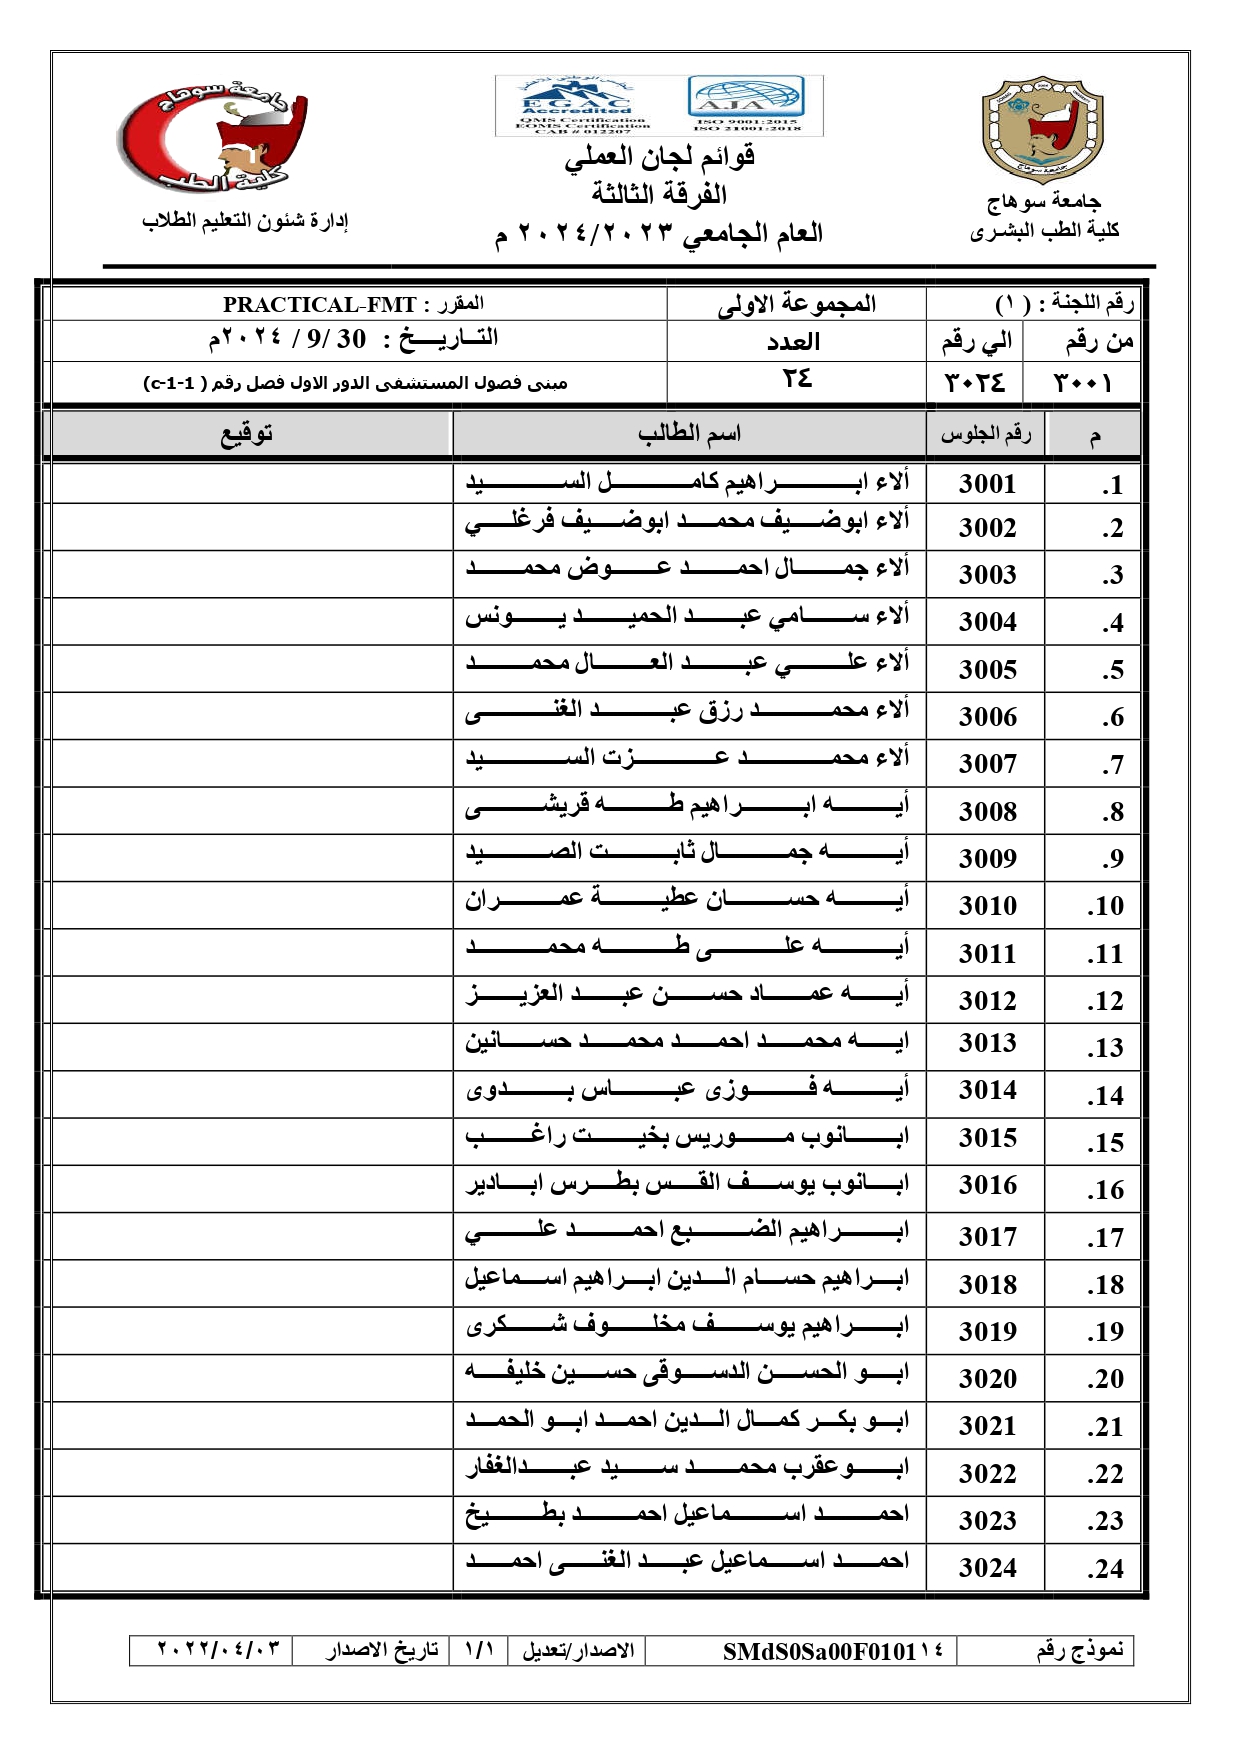 جامعة سوهاج
كلية الطب
EGAC
Accredited
QMS Certification
EOMS Certification
CAB # 012207
AJA
ISO 9001:2015
ISO 21001:2018
جامعة سوهاج
جامعة سوهاج
كلية الطب البشرى
قوائم لجان العملي
الفرقة الثالثة
العام الجامعي ٢٠٢٤/٢٠٢٣ م
إدارة شئون التعليم الطلاب
رقم اللجنة : ( ١) المجموعة الاولى المقرر : PRACTICAL-FMT
من رقم الي رقم العدد التــاريــــخ : 30 /9 / ٢٠٢٤م
٣٠٠١ ٣٠٢٤ ٢٤ مبنى فصول المستشفى الدور الاول فصل رقم ( c-1-1)
م رقم الجلوس اسم الطالب توقيع
1. 3001 ألاء ابراهيم كامل السيد
2. 3002 ألاء ابوضيف محمد ابوضيف فرغلي
3. 3003 ألاء جمال احمد عوض محمد
4. 3004 ألاء سامي عبد الحميد يونس
5. 3005 ألاء علي عبد العال محمد
6. 3006 ألاء محمد رزق عبد الغنى
7. 3007 ألاء محمد عزت السيد
8. 3008 أيه ابراهيم طه قريشى
9. 3009 أيه جمال ثابت الصيد
10. 3010 أيه حسان عطية عمران
11. 3011 أيه على طه محمد
12. 3012 أيه عماد حسن عبد العزيز
13. 3013 ايه محمد احمد محمد حسانين
14. 3014 أيه فوزى عباس بدوى
15. 3015 ابانوب موريس بخيت راغب
16. 3016 ابانوب يوسف القس بطرس ابادير
17. 3017 ابراهيم الضبع احمد علي
18. 3018 ابراهيم حسام الدين ابراهيم اسماعيل
19. 3019 ابراهيم يوسف مخلوف شكرى
20. 3020 ابو الحسن الدسوقى حسين خليفه
21. 3021 ابو بكر كمال الدين احمد ابو الحمد
22. 3022 ابوعقرب محمد سيد عبدالغفار
23. 3023 احمد اسماعيل احمد بطيخ
24. 3024 احمد اسماعيل عبد الغنى احمد
نموذج رقم SMdS0Sa00F0101١٤ الاصدار/تعديل ١/١ تاريخ الاصدار ٢٠٢٢/٠٤/٠٣